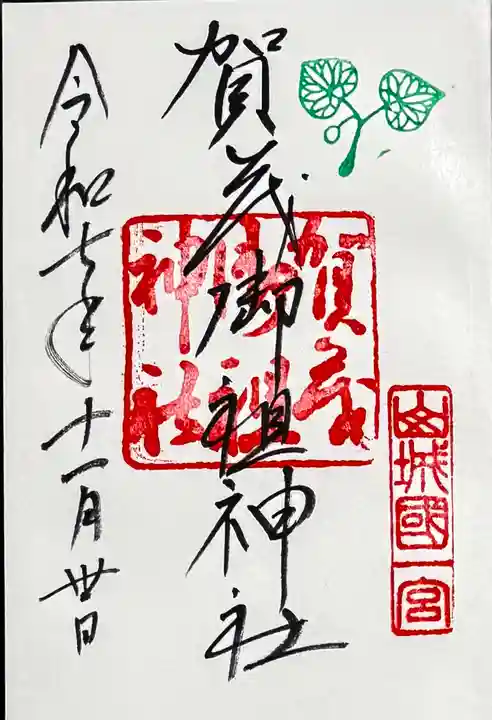 山城國一宮
賀茂御祖神社
賀茂
御祖
神社
令和七年十一月卅日